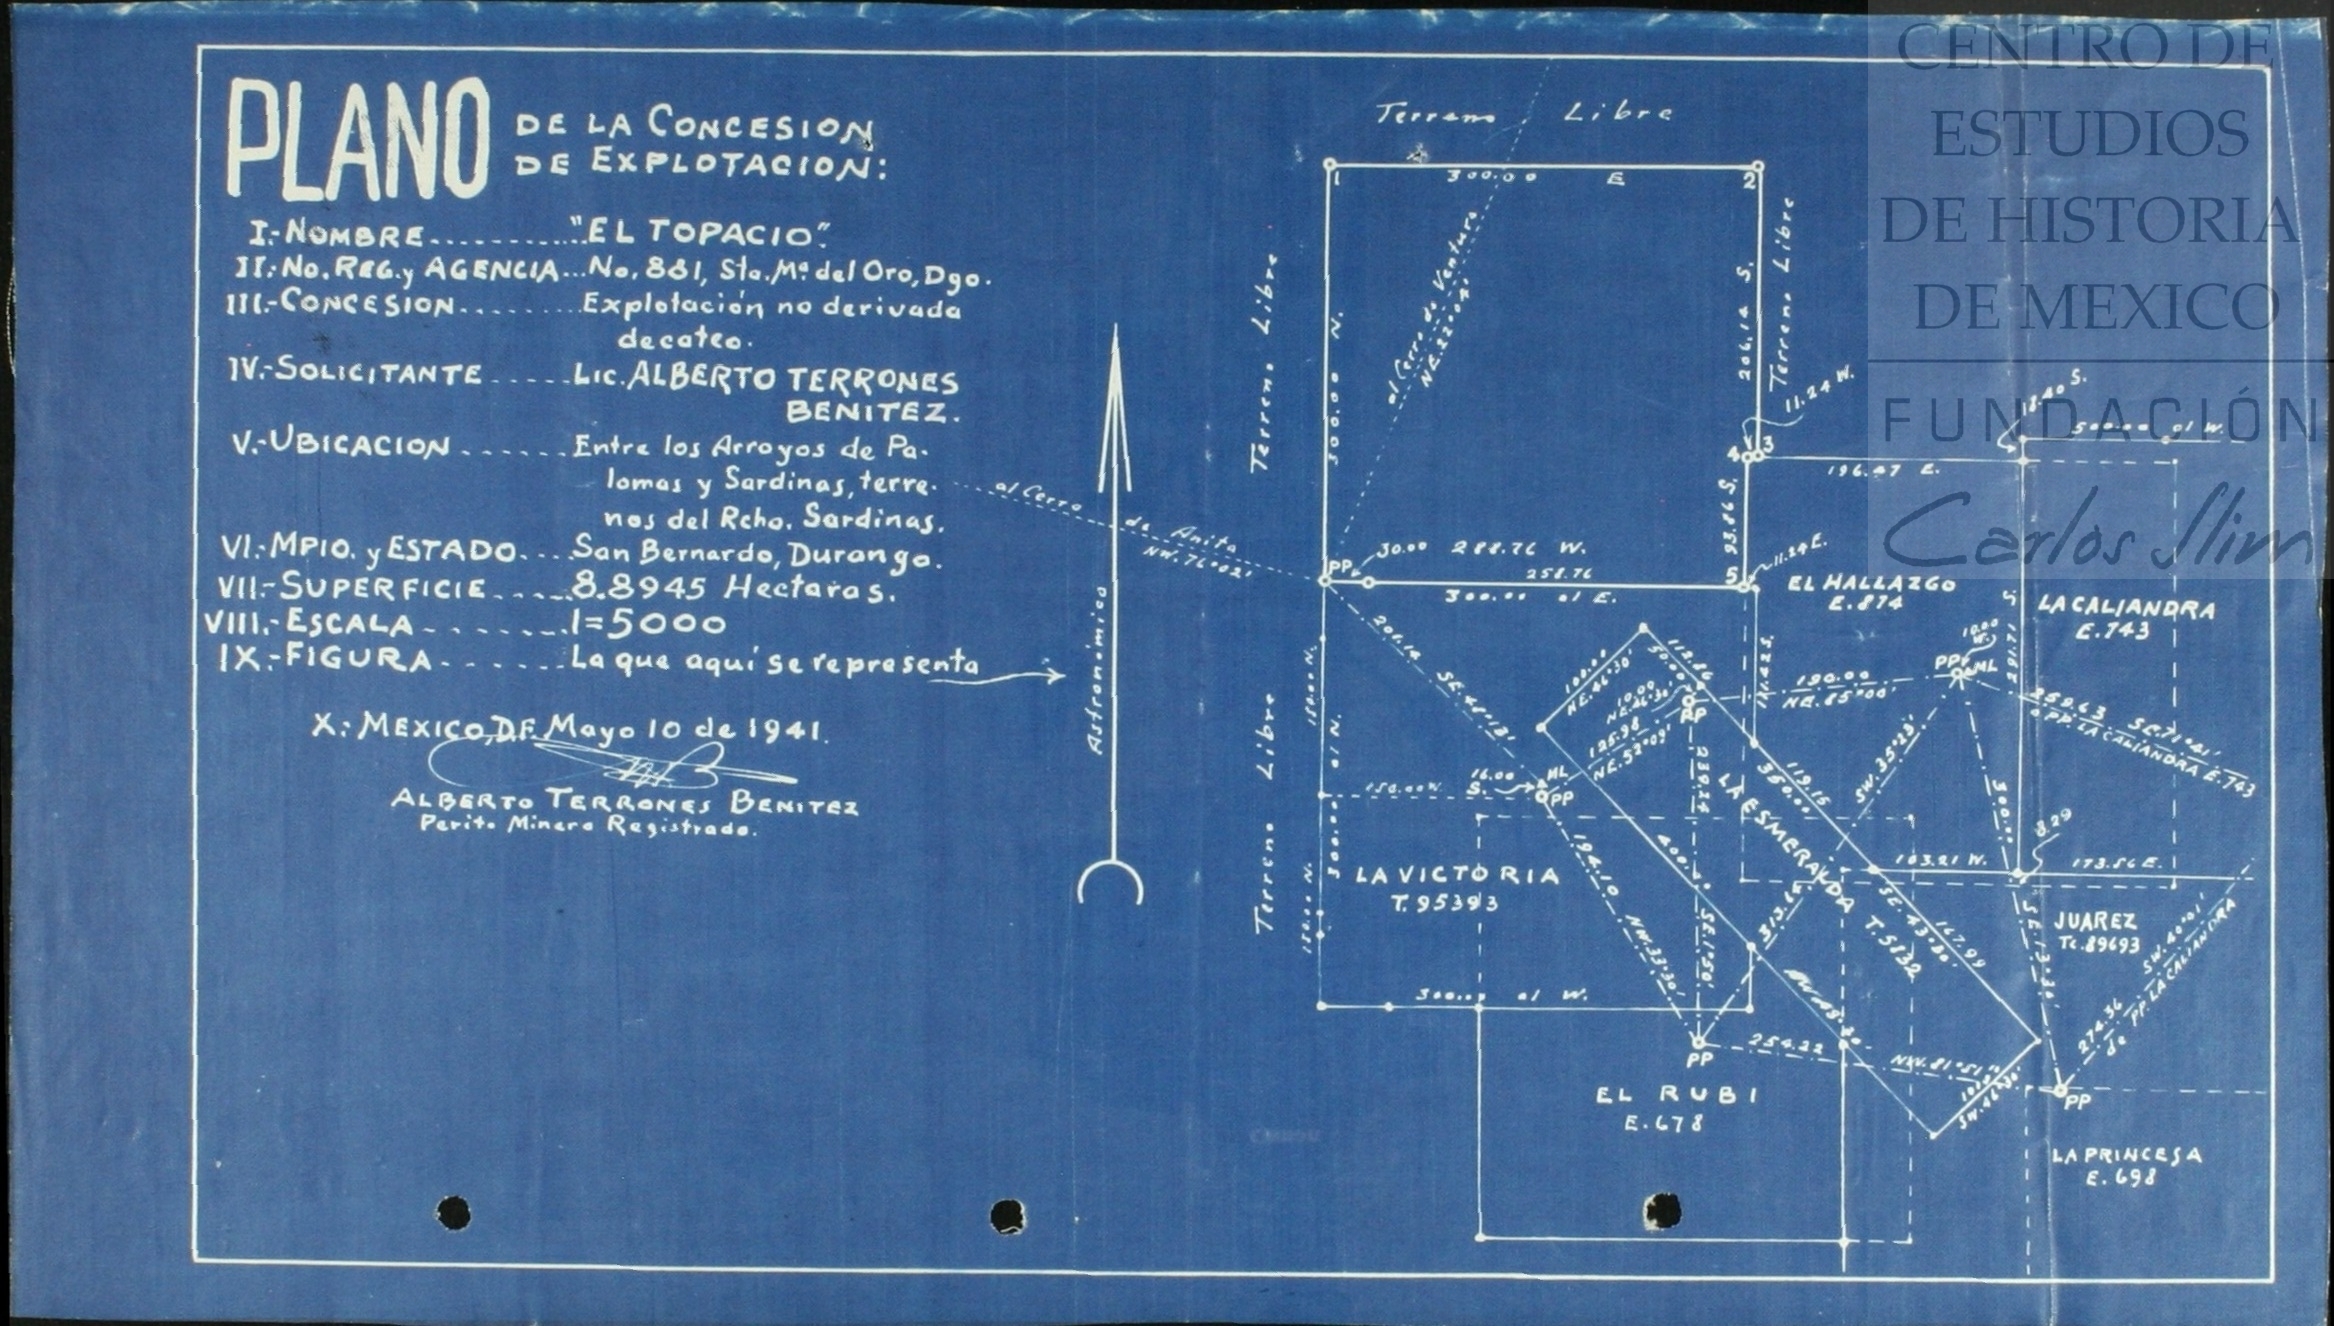 PLANO DE LA CONCESION
DE EXPLOTACION:
I.-NOMBRE..........."EL TOPACIO".
II.-No. REG. y AGENCIA...No. 881, Sta. Mª del Oro, Dgo.
III.-CONCESION.........Explotación no derivada
decateo.
IV.-SOLICITANTE.....Lic. ALBERTO TERRONES
BENITEZ.
V.-UBICACION......Entre los Arroyos de Pa-
lomas y Sardinas, terre-
nos del Rcho. Sardinas.
VI.-MPIO. y ESTADO....San Bernardo, Durango.
VII.-SUPERFICIE.....8.8945 Hectaras.
VIII.-ESCALA.......1=5000
IX.-FIGURA.......La que aquí se representa
X.- MEXICO, D.F. Mayo 10 de 1941.
ALBERTO TERRONES BENITEZ
Perito Minero Registrado.
Astronómico
al Cerro de Anita
NW. 76°02'
Terreno Libre
1
300.00 E
2
Terreno Libre
300.00 N.
al Cerro de Ventura
206.14 S.
Terreno Libre
11.24 W.
4
3
196.47 E.
18.40 S.
500.00 al W.
93.86 S.
PP
30.00
288.76 W.
258.76
300.00 al E.
5
11.24 E.
EL HALLAZGO
E. 874
LA CALIANDRA
E. 743
291.71 S.
206.14 SE. 48°13'
150.00 N.
300.00 al N.
150.00 N.
Terreno Libre
100.00
NE. 46°30'
50.00
112.86
10.00
NE. 46°30'
125.98
NE. 52°09'
PP
111.42 S.
190.00
NE. 85°00'
10.00
W.
PP
ML
259.63 SE. 71°41'
a PP LA CALIANDRA E. 743
150.00 W.
16.00
S.
ML
PP
SW. 35°23'
313.65
119.15
350.00
LA ESMERALDA T. 5832
400.00
SE. 43°30'
167.99
103.21 W.
8.29
173.56 E.
300.00
SE. 13°36'
LA VICTORIA
T. 95393
194.10 NW. 33°30'
239.27
SE. 1°50'
JUAREZ
Tc. 89693
300.00 al W.
PP
254.22 NW. 81°51'
SW. 46°30'
274.36
SW. 40°01'
de PP. LA CALIANDRA
PP
EL RUBI
E. 678
LA PRINCESA
E. 698
CENTRO DE
ESTUDIOS
DE HISTORIA
DE MEXICO
FUNDACIÓN
Carlos Slim